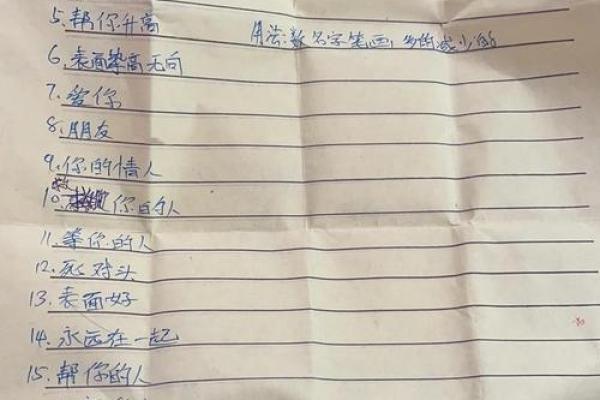 5.帮你升高
用法:数名字笔画,多的减少的
6.表面 高无向
7.爱你
8.朋友
9.你的情人
10.救 你的人
11.等你的人
12.死对头
13.表面好
14.永远在一起
15.帮你的人